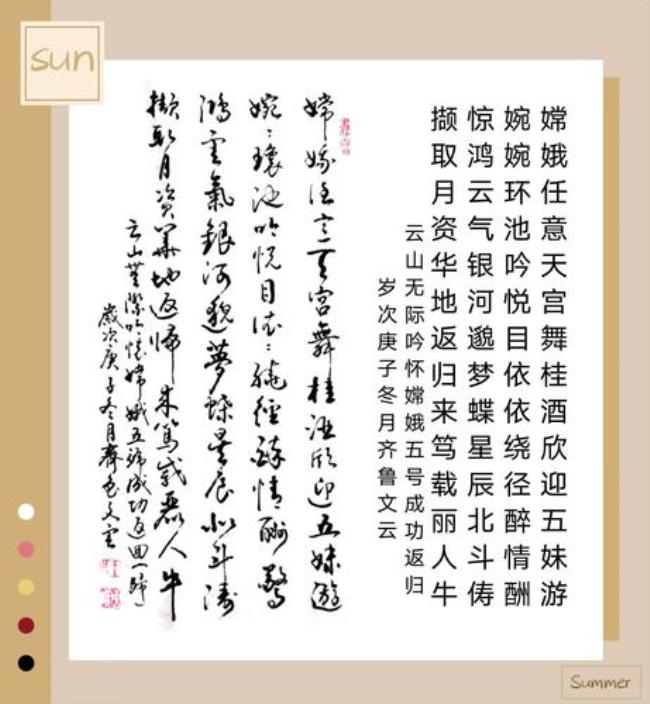 sun
嫦娥任意天宫舞桂酒欣迎五妹游
婉婉环池吟悦目依依绕径醉情酬
惊鸿云气银河邈梦蝶星辰北斗俦
撷取月资华地返归来笃载丽人牛
云山无际吟怀嫦娥五号成功返归
岁次庚子冬月齐鲁文云
嫦娥任意天宫舞桂酒欣迎五妹遊
婉:環池吟悦目依:繞徑醉情酬驚
鴻雲氣銀河邈夢蝶星辰北斗
撷取月資華地返歸来篤载麗人牛
云山無際吟懷嫦娥五號成功返回(歸)
歲次庚子冬月齊魯文雲
Summer